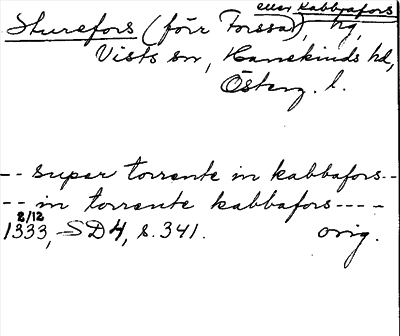 eller Kabbjafors
Sturefors (förr Forssa), hg,
Vists sn, Hanekinds hd,
Österg. l.
-- super torrente in kabbafors--
-- in torrente kabbafors----
2/12
1333, SD4, s. 341. orig.